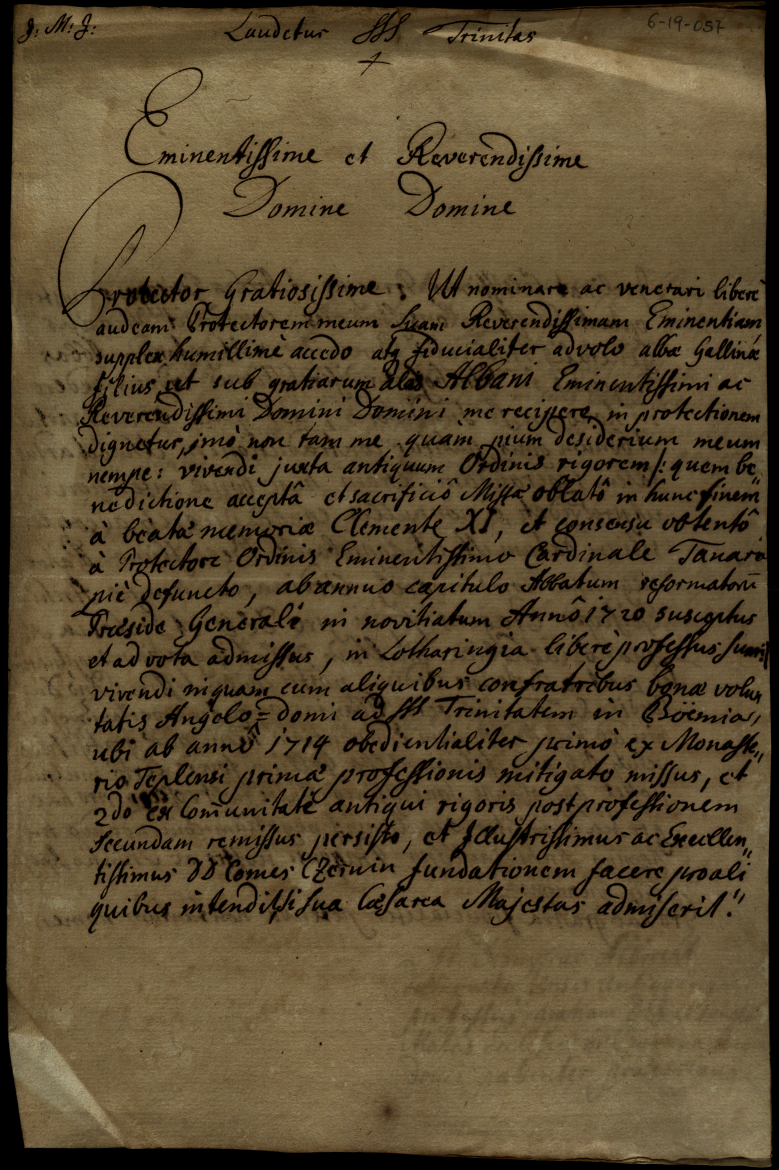 J: M: J:
Laudetur SSS Trinitas
6-19-057
Eminentissime et Reverendissime
Domine Domine
Protector Gratiosissime. Ut nominare ac venerari liberè
audeam Protectorem meum Suam Reverendissimam Eminentiam
supplex humillimè accedo atq fiducialiter advolo albæ Gallinæ
filius, ut sub gratiarum alas Albani Eminentissimi ac
Reverendissimi Domini Domini me recipere in protectionem
dignetur, imò non tam me quàm pium desiderium meum
nempe: vivendi juxta antiquum Ordinis rigorem /: quem be„
nedictione acceptâ et sacrificiô Missæ oblatô in hunc finem
à beatæ memoriæ Clemente XI, et consensu obtentô
à Protectore Ordinis Eminentissimo Cardinale Tanara
piè defuncto, ab annuo capitulo Abbatum reformatorū
Præside Generali in novitiatum Annô 1720 susceptus
et ad vota admissus, in Lotharingia liberè professus sum :/
vivendi inquam cum aliquibus confratribus bonæ volun
tatis Angelo=domi ad SSS Trinitatem in Böemia,
ubi ab annô 1714 obedientialiter primò ex Monaste„
rio Teplensi primæ professionis mitigatæ missus, et
2dò ex Comunitate antiqui rigoris post professionem
secundam remissus persisto, et Illustrissimus ac Excellen„
tissimus DD Comes Czernin fundationem facere pro ali
quibus intendit, si sua Cæsarea Majestas admiserit."